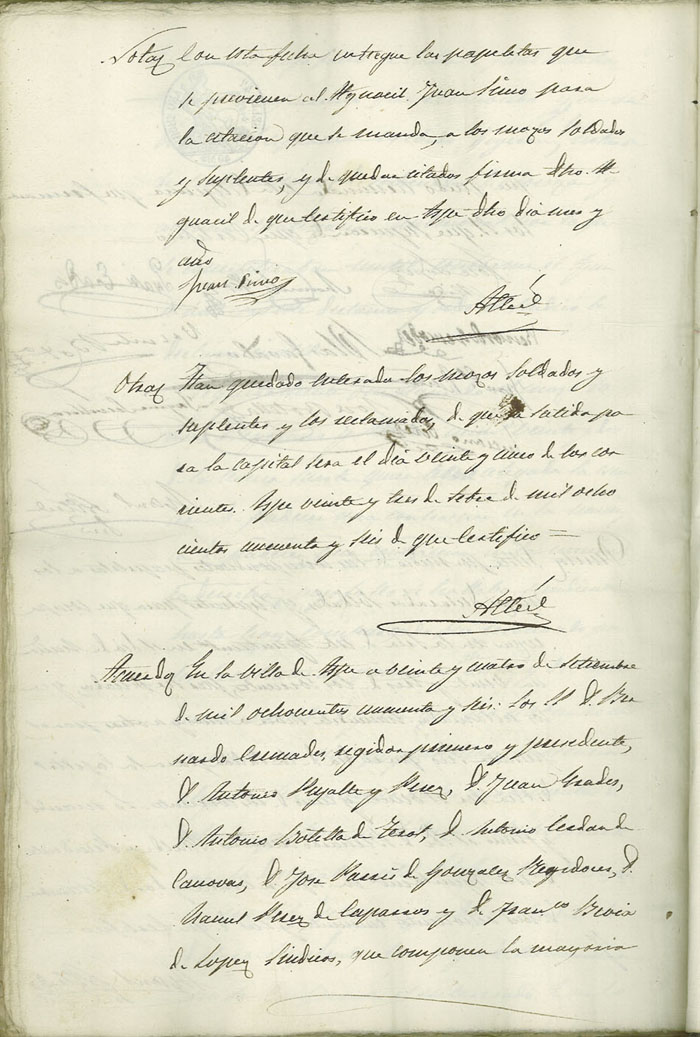 Nota Con esta fecha entregue las papeletas que
se previenen al Alguacil Juan Simo para
la citacion que se manda, a los mozos soldados
y suplentes, y de quedar citados firma dho. Al
guacil de que certifico en Aspe dho dia mes y
año
Juan Simo
Otra Han quedado enterados los mozos soldados y
suplentes y los reclamados de que la salida pa
ra la capital sera el dia veinte y cinco de los cor
rientes. Aspe veinte y tres de Setre de mil ocho
cientos cuncuenta y seis de que certifico =
Acuerdo En la villa de Aspe a veinte y cuatro de Setiembre
de mil ochocientos cuncuenta y seis: los SS D. Ber
nardo Cremades, regidor primero y presidente,
D. Antonio Pujalte y Perez, D. Juan Prades,
D. Antonio Botella de Terol, D. Antonio Cerdan de
Canovas, D. Jose Pastor de Gonzalez Regidores, D.
Manuel Perez de Caparros y D. Franco Bevia
de Lopez Sindicos, que componen la mayoria